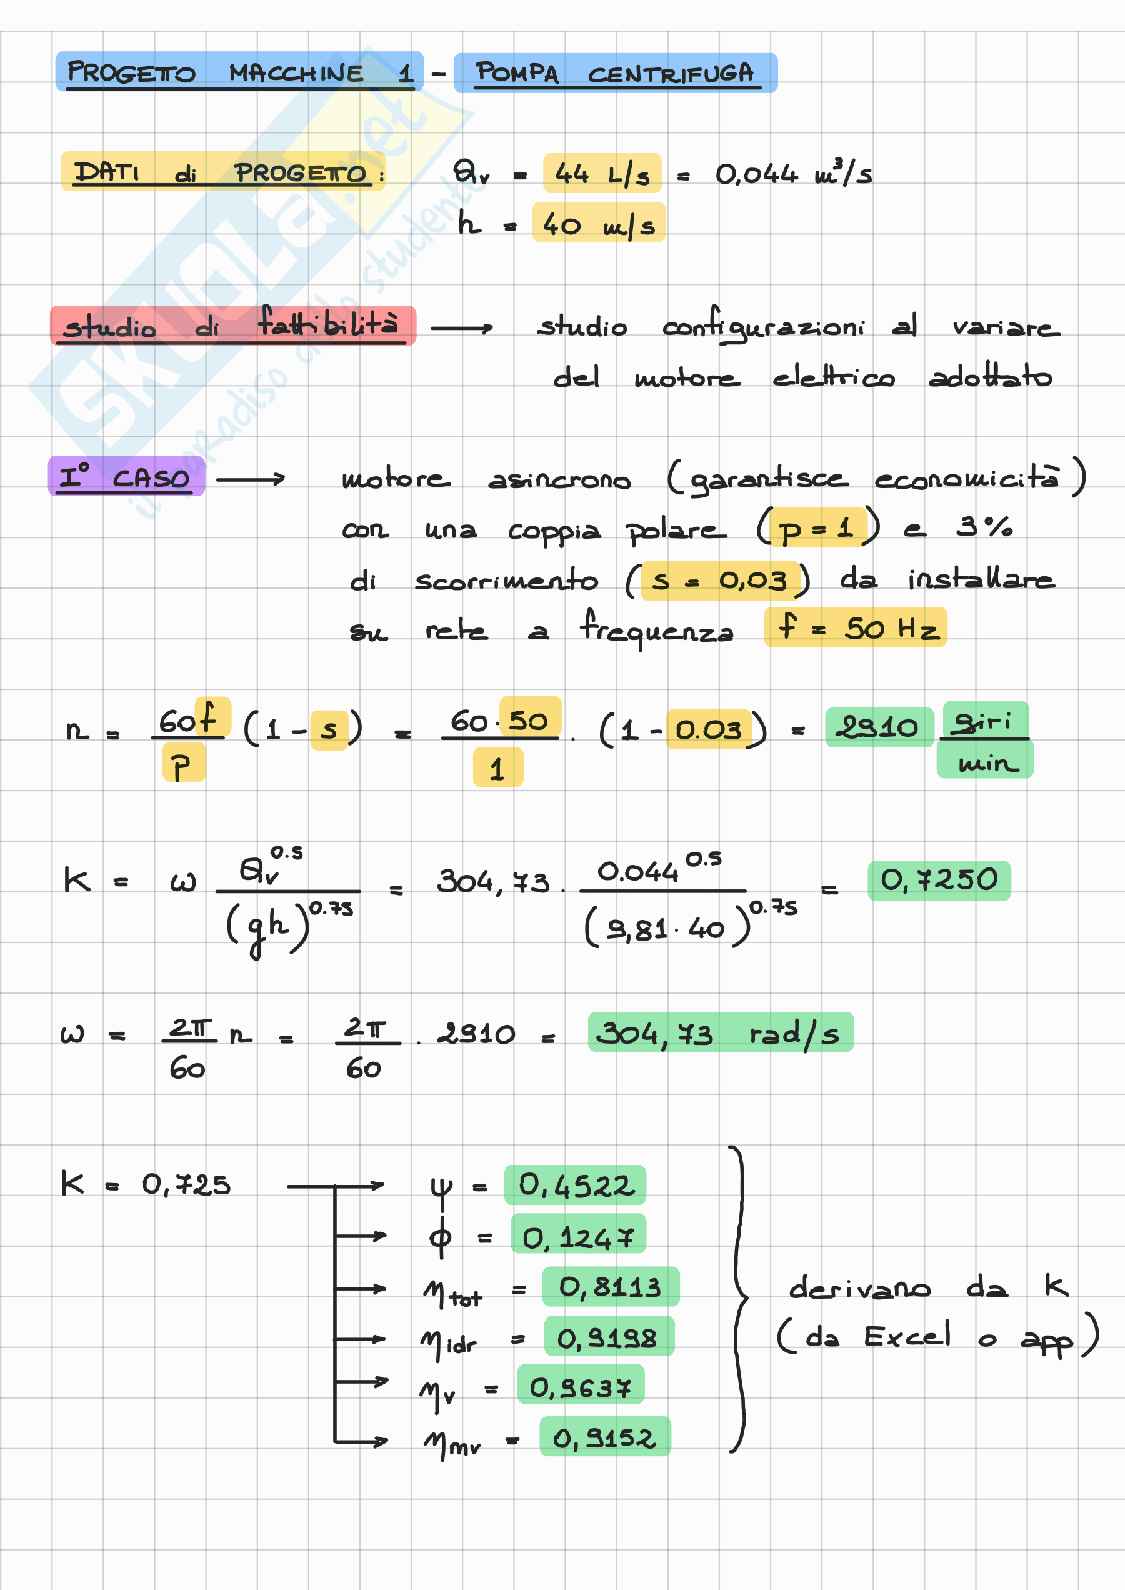 PROGETTO MACCHINE 1 - POMPA CENTRIFUGA
DATI di PROGETTO: Qv = 44 L/s = 0,044 m³/s
h = 40 m/s
studio di fattibilità → studio configurazioni al variare
del motore elettrico adottato
I° CASO → motore asincrono (garantisce economicità)
con una coppia polare (p = 1) e 3%
di scorrimento (s = 0,03) da installare
su rete a frequenza f = 50 Hz
n = 60f/p (1 - s) = 60·50/1 · (1 - 0.03) = 2910 giri/min
K = ω Qv^0.5/(gh)^0.75 = 304,73 · 0.044^0.5/(9,81·40)^0.75 = 0,7250
ω = 2π/60 n = 2π/60 · 2910 = 304,73 rad/s
K = 0,725 → ψ = 0,4522
→ ϕ = 0,1247
→ ηtot = 0,8113
→ ηidr = 0,9198
→ ηv = 0,9637
→ ηmv = 0,9152
derivano da K
(da Excel o app)
SKUOLA.net
il paradiso dello studente